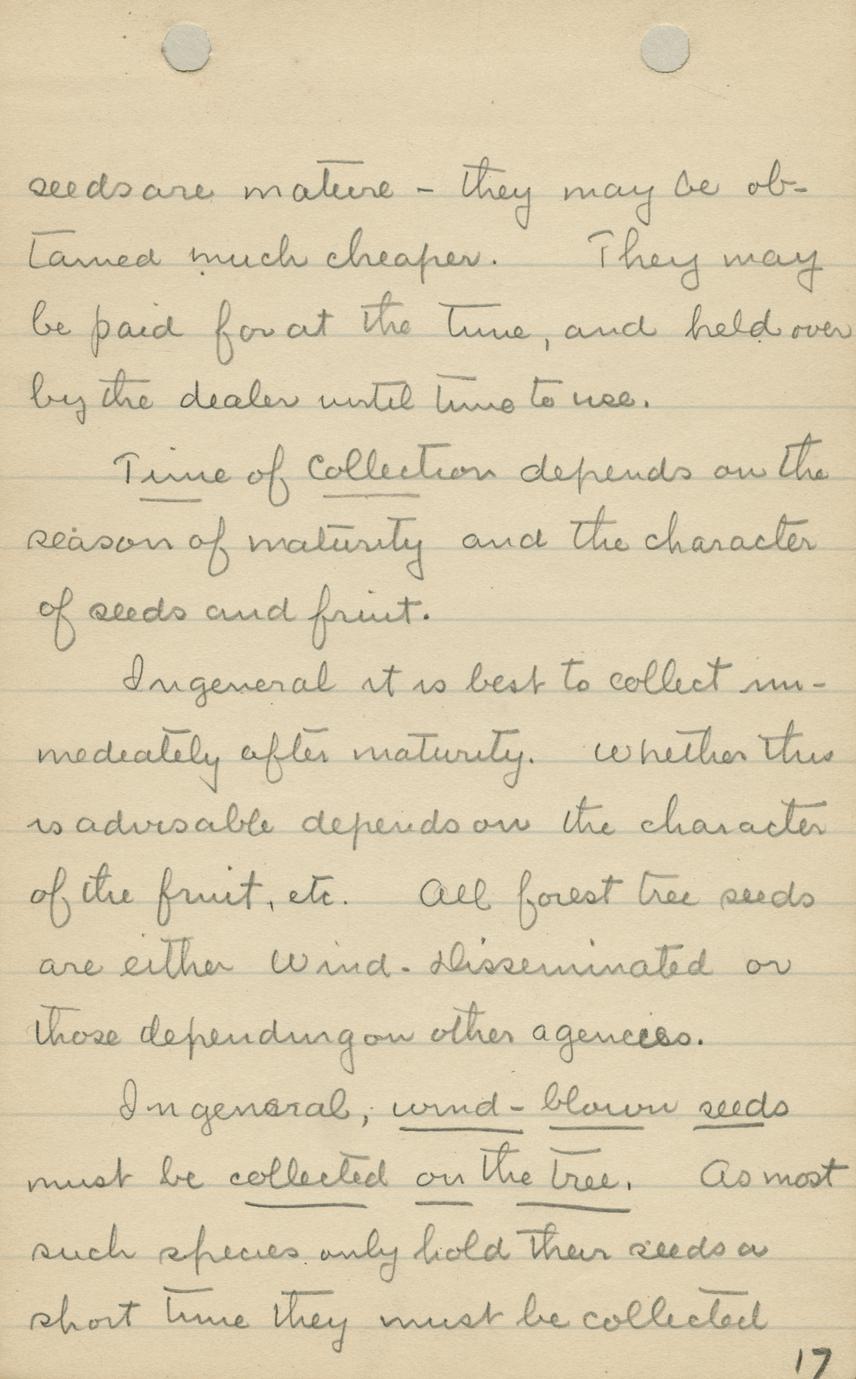 seeds are mature - they may be ob-
tained much cheaper. They may
be paid for at the time, and held over
by the dealer until time to use.
Time of Collection depends on the
season of maturity and the character
of seeds and fruit.
In general it is best to collect im-
mediately after maturity. Whether this
is advisable depends on the character
of the fruit, etc. All forest tree seeds
are either Wind-Disseminated or
those depending on other agencies.
In general, wind-blown seeds
must be collected on the tree. As most
such species only hold their seeds a
short time they must be collected
17